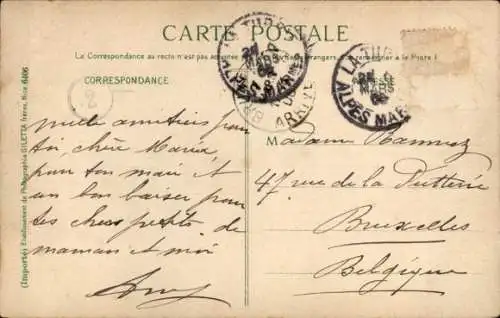 CARTE POSTALE
La Correspondance au recto n'est pas acceptée
étrangers
à la Poste
CORRESPONDANCE
ADRESSE
2
LA TUR
ALPES MAR
ARRIVÉE
LA TUR
MARS
ALPES MAR
mille amitiés pour
toi, chère Maria,
pour ton mari et
un bon baiser pour
tes chers petits, de
maman et moi
Madame
47 rue de la Putterie
Bruxelles
Belgique
(Importé) Etablissement de Photographie GILETTA frères, Nice 6406